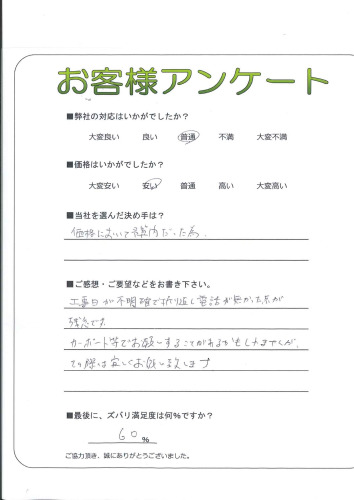 お客様アンケート
■弊社の対応はいかがでしたか？
大変良い 良い 普通 不満 大変不満
■価格はいかがでしたか？
大変安い 安い 普通 高い 大変高い
■当社を選んだ決め手は？
価格において予算内だった為。
■ご感想・ご要望などをお書き下さい。
工事日が不明確で折り返し電話が無かった点が
残念です。
カーポート等でお願いすることがあるかもしれませんが、
その際は宜しくお願い致します
■最後に、ズバリ満足度は何%ですか？
60%
ご協力頂き、誠にありがとうございました。